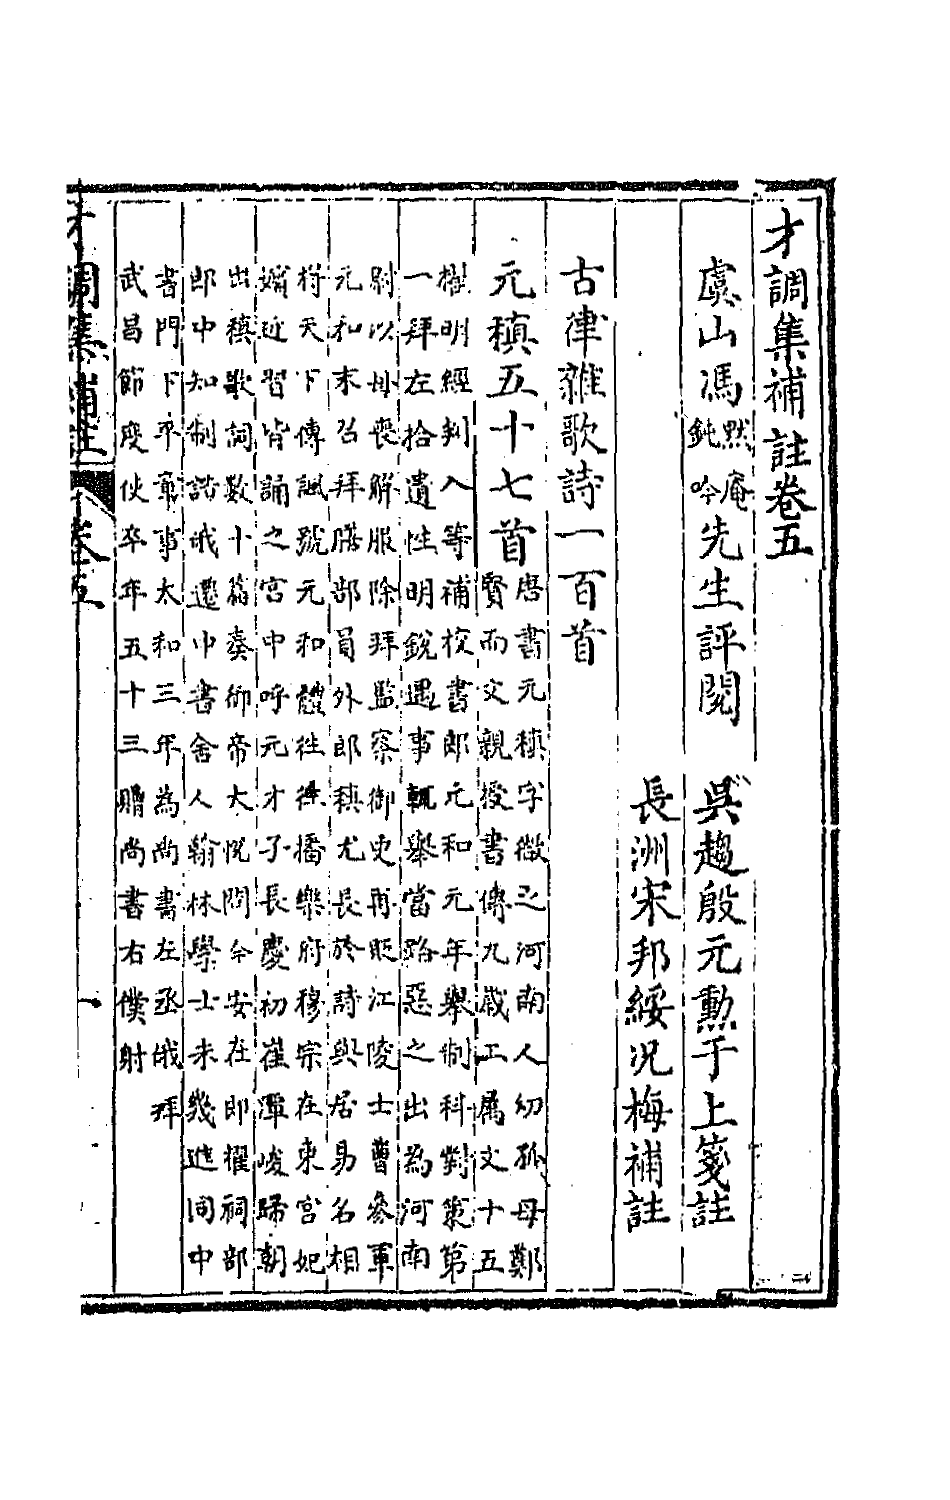 才調集補註卷五
虞山馮默庵鈍吟先生評閱　吳趨殷元勲于上箋註
長洲宋邦綏况梅補註
古律雜歌詩一百首
元稹五十七首
唐書元稹字微之河南人幼孤母鄭
賢而文親授書傳九歲工屬文十五
擢明經判入等補校書郎元和元年舉制科對策第
一拜左拾遺性明銳遇事輒舉當路惡之出為河南
尉以母喪解服除拜監察御史再貶江陵士曹參軍
元和末召拜膳部員外郎稹尤長於詩與居易名相
樹天下傳諷號元和體往往播樂府穆宗在東宮妃
嬪近習皆誦之宮中呼元才子長慶初崔潭峻歸朝
出稹歌詞數十篇奏御帝大悅問今安在即擢祠部
郎中知制誥俄遷中書舍人翰林學士未幾進同中
書門下平章事太和三年為尚書左丞俄拜
武昌節度使卒年五十三贈尚書右僕射
才調集補註　卷五　一